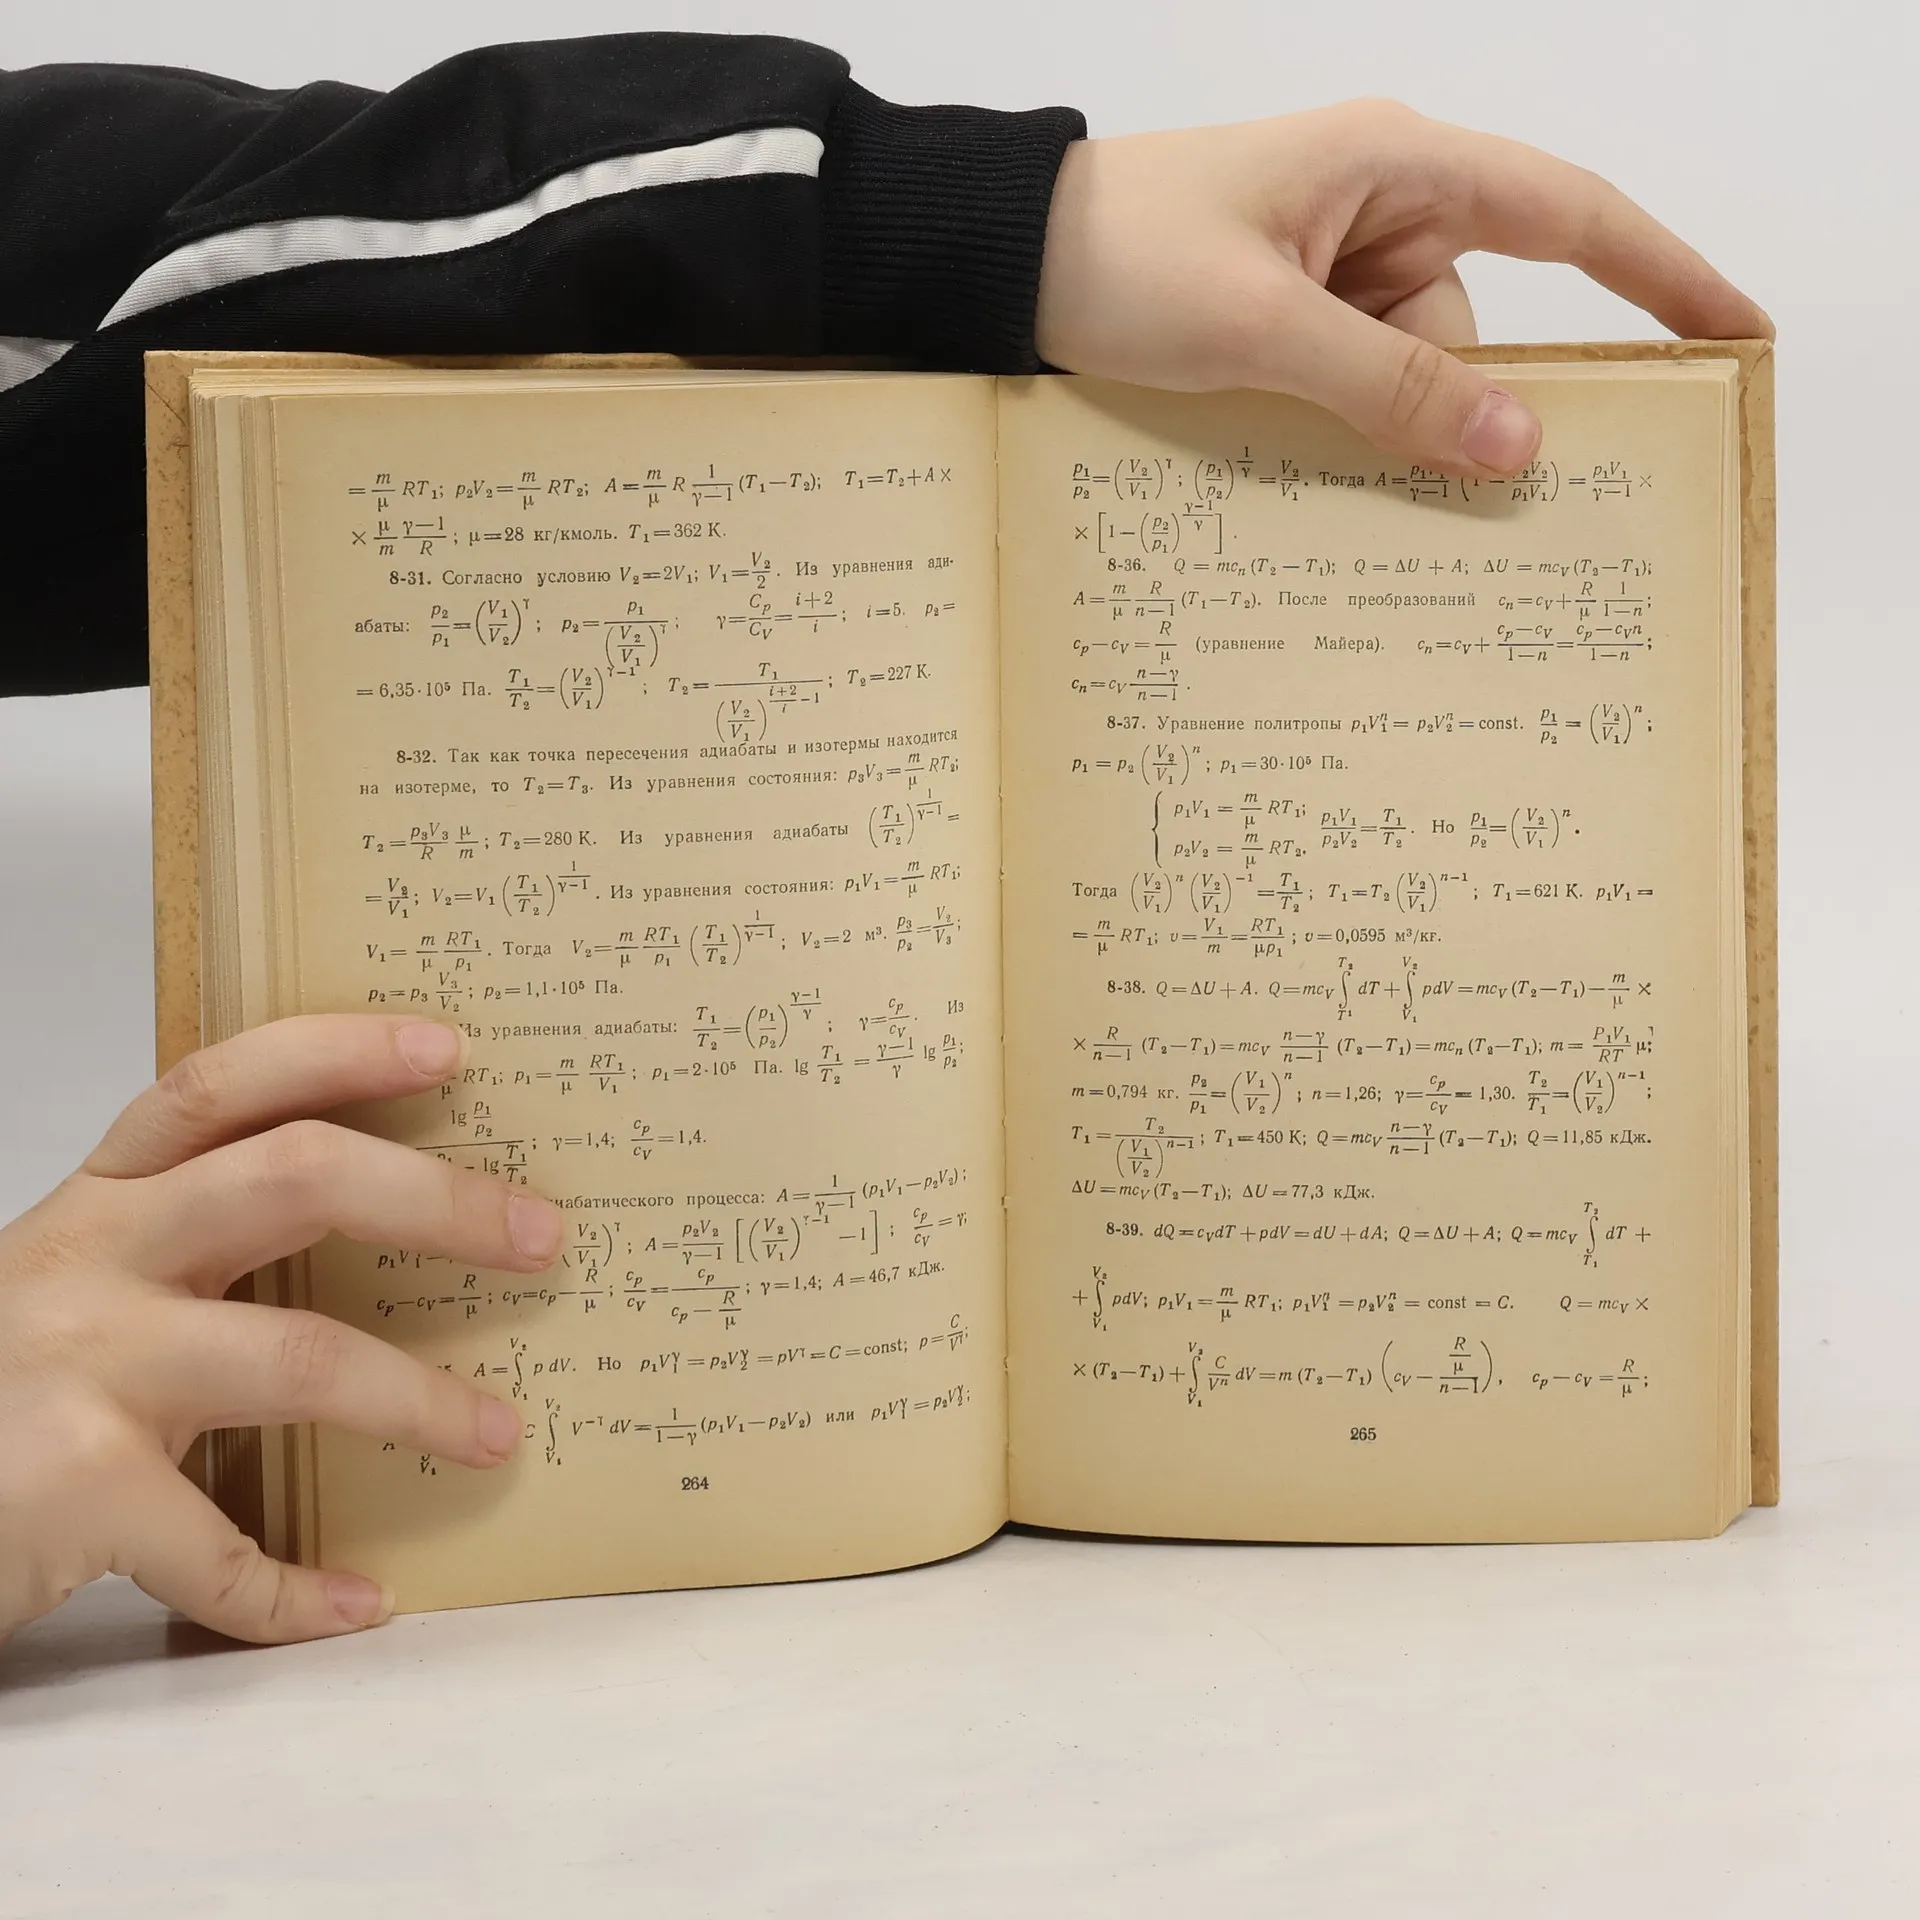 = m/μ RT₁; p₂V₂ = m/μ RT₂; A = m/μ R 1/(γ−1) (T₁−T₂); T₁=T₂+A×
× μ/m (γ−1)/R; μ=28 кг/кмоль. T₁=362 К.
8-31. Согласно условию V₂=2V₁; V₁=V₂/2. Из уравнения ади-
абаты: p₂/p₁=(V₁/V₂)^γ; p₂=p₁/(V₂/V₁)^γ; γ=C_p/C_V=(i+2)/i; i=5. p₂=
=6,35·10⁵ Па. T₁/T₂=(V₂/V₁)^(γ−1); T₂=T₁/(V₂/V₁)^((i+2)/i −1); T₂=227 К.
8-32. Так как точка пересечения адиабаты и изотермы находится
на изотерме, то T₂=T₃. Из уравнения состояния: p₃V₃=m/μ RT₂;
T₂=p₃V₃/R μ/m; T₂=280 К. Из уравнения адиабаты (T₁/T₂)^(1/(γ−1))=
=V₂/V₁; V₂=V₁(T₁/T₂)^(1/(γ−1)). Из уравнения состояния: p₁V₁=m/μ RT₁;
V₁=m/μ RT₁/p₁. Тогда V₂=m/μ RT₁/p₁ (T₁/T₂)^(1/(γ−1)); V₂=2 м³. p₃/p₂=V₂/V₃;
p₂=p₃ V₃/V₂; p₂=1,1·10⁵ Па.
Из уравнения адиабаты: T₁/T₂=(p₁/p₂)^((γ−1)/γ); γ=c_p/c_V. Из
μ RT₁; p₁=m/μ RT₁/V₁; p₁=2·10⁵ Па. lg T₁/T₂=(γ−1)/γ lg p₁/p₂;
lg p₁/p₂
− lg T₁/T₂; γ=1,4; c_p/c_V=1,4.
процесса: A=1/(γ−1) (p₁V₁−p₂V₂);
(V₂/V₁)^γ; A=p₂V₂/(γ−1) [(V₂/V₁)^(γ−1) −1]; c_p/c_V=γ;
c_p−c_V=R/μ; c_V=c_p−R/μ; c_p/c_V=c_p/(c_p−R/μ); γ=1,4; A=46,7 кДж.
A=∫_{V₁}^{V₂} p dV. Но p₁V₁^γ=p₂V₂^γ=pV^γ=C=const; p=C/V^γ;
∫_{V₁}^{V₂} V^−γ dV=1/(1−γ) (p₁V₁−p₂V₂) или p₁V₁^γ=p₂V₂^γ;
264
p₁/p₂=(V₂/V₁)^γ; (p₁/p₂)^(1/γ)=V₂/V₁. Тогда A= =p₁V₁/(γ−1) ×
×[1−(p₂/p₁)^((γ−1)/γ)].
8-36. Q=mc_n(T₂−T₁); Q=ΔU+A; ΔU=mc_V(T₂−T₁);
A=m/μ R/(n−1) (T₁−T₂). После преобразований c_n=c_V+R/μ 1/(1−n);
c_p−c_V=R/μ (уравнение Майера). c_n=c_V+(c_p−c_V)/(1−n)=(c_p−c_Vn)/(1−n);
c_n=c_V (n−γ)/(n−1).
8-37. Уравнение политропы p₁V₁ⁿ=p₂V₂ⁿ=const. p₁/p₂=(V₂/V₁)ⁿ;
p₁=p₂(V₂/V₁)ⁿ; p₁=30·10⁵ Па.
{ p₁V₁=m/μ RT₁;
p₂V₂=m/μ RT₂. p₁V₁/p₂V₂=T₁/T₂. Но p₁/p₂=(V₂/V₁)ⁿ.
Тогда (V₂/V₁)ⁿ(V₂/V₁)⁻¹=T₁/T₂; T₁=T₂(V₂/V₁)ⁿ⁻¹; T₁=621 К. p₁V₁=
=m/μ RT₁; v=V₁/m=RT₁/μp₁; v=0,0595 м³/кг.
8-38. Q=ΔU+A. Q=mc_V∫_{T₁}^{T₂} dT+∫_{V₁}^{V₂} pdV=mc_V(T₂−T₁)−m/μ ×
× R/(n−1) (T₂−T₁)=mc_V (n−γ)/(n−1) (T₂−T₁)=mc_n(T₂−T₁); m=P₁V₁/RT μ;
m=0,794 кг. p₂/p₁=(V₁/V₂)ⁿ; n=1,26; γ=c_p/c_V=1,30. T₂/T₁=(V₁/V₂)ⁿ⁻¹;
T₁=T₂/(V₁/V₂)ⁿ⁻¹; T₁=450 К; Q=mc_V (n−γ)/(n−1) (T₂−T₁); Q=11,85 кДж.
ΔU=mc_V(T₂−T₁); ΔU=77,3 кДж.
8-39. dQ=c_VdT+pdV=dU+dA; Q=ΔU+A; Q=mc_V∫_{T₁}^{T₂} dT+
+∫_{V₁}^{V₂} pdV; p₁V₁=m/μ RT₁; p₁V₁ⁿ=p₂V₂ⁿ=const=C. Q=mc_V×
×(T₂−T₁)+∫_{V₁}^{V₂} C/Vⁿ dV=m(T₂−T₁)(c_V−(R/μ)/(n−1)), c_p−c_V=R/μ;
265